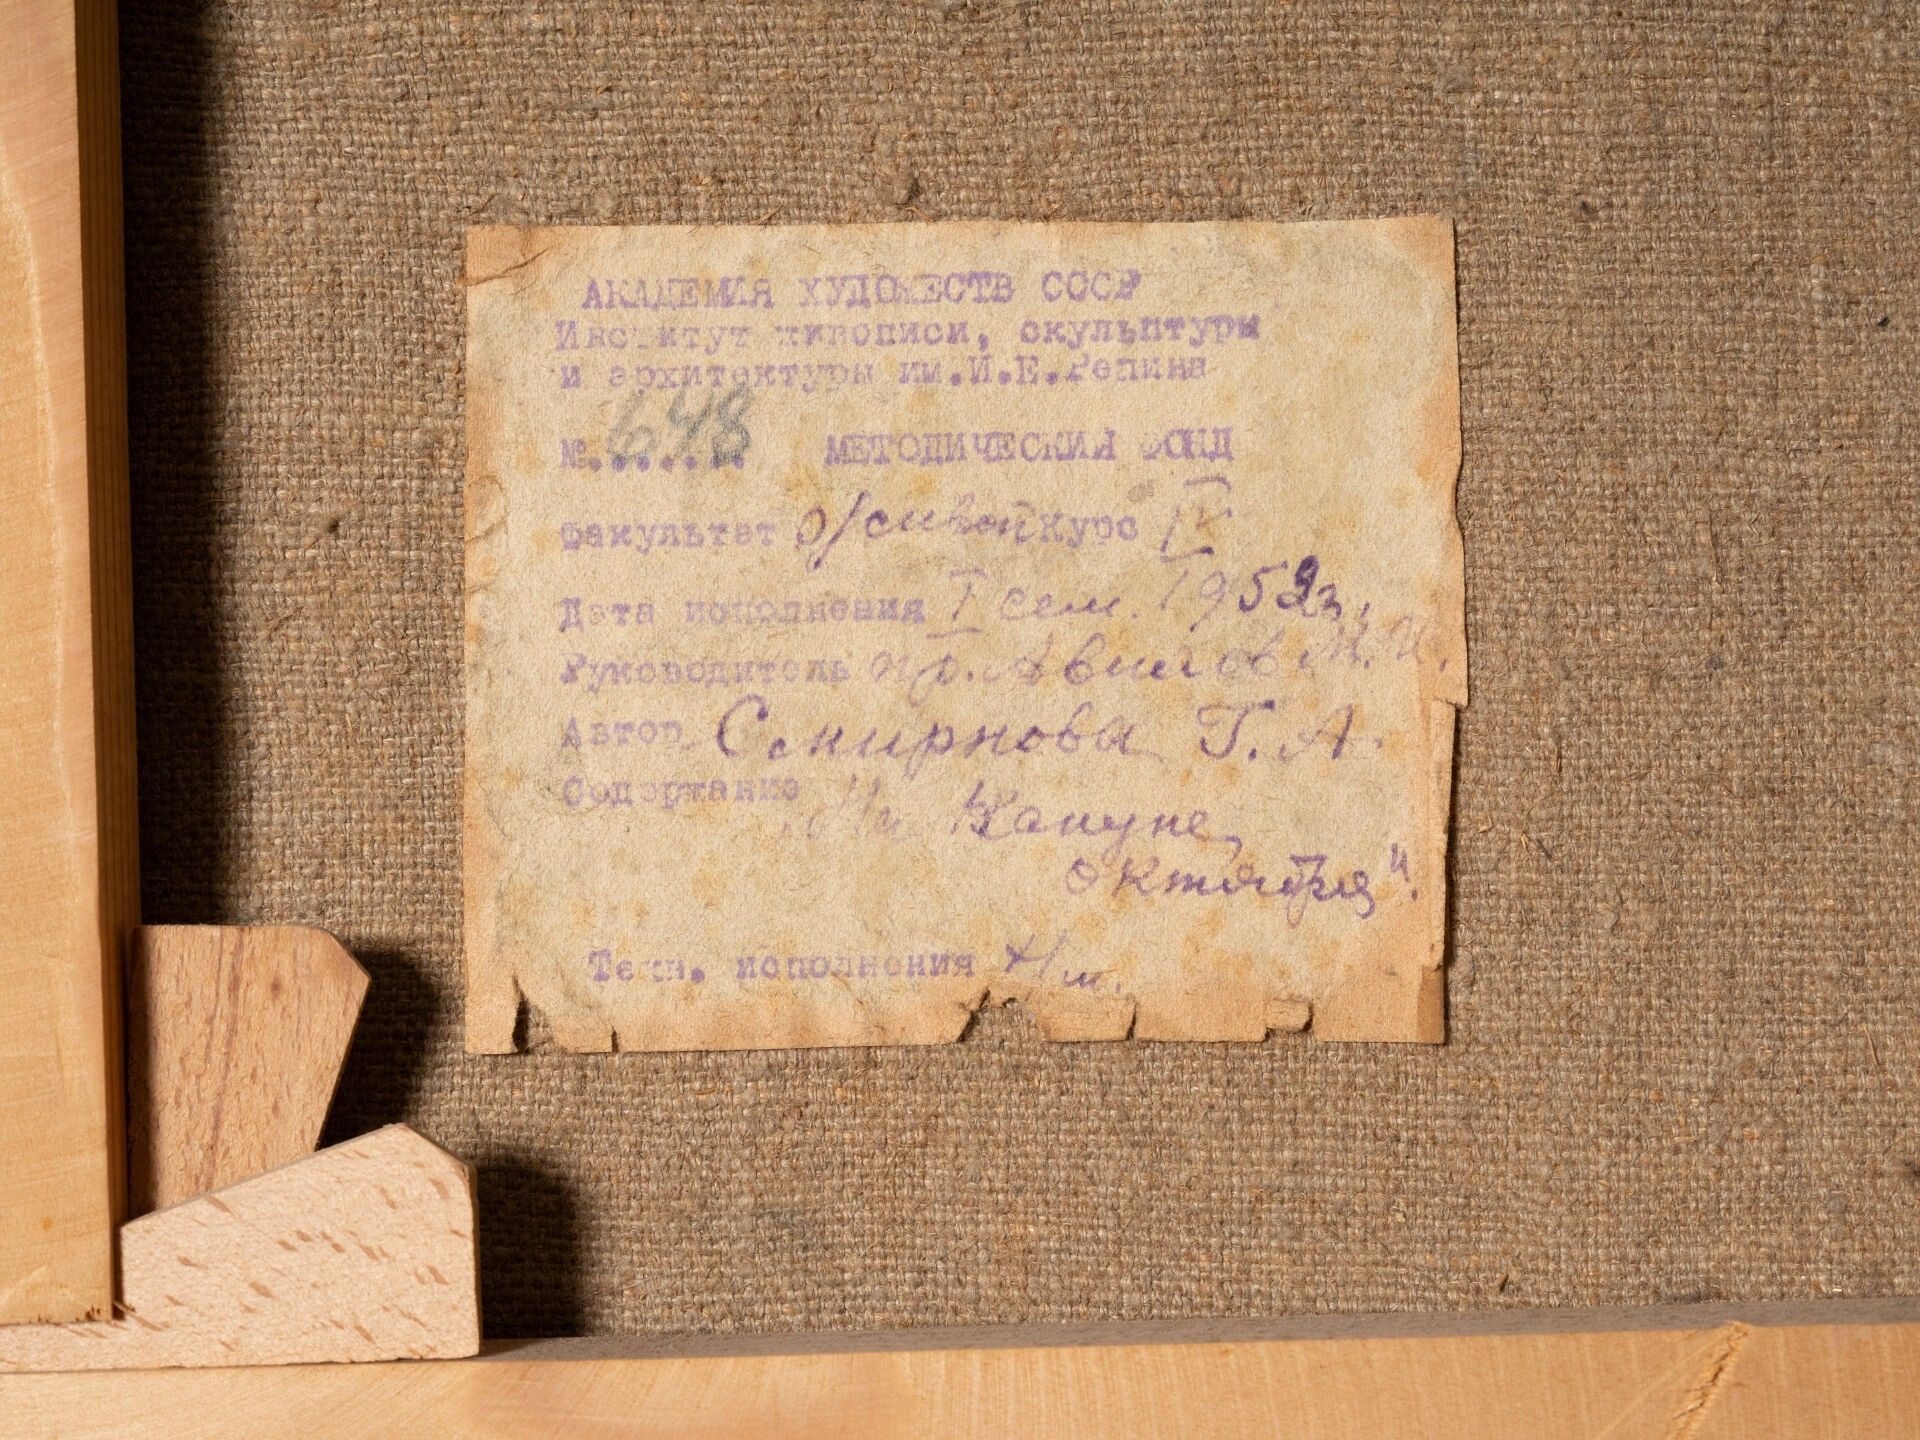 АКАДЕМИЯ ХУДОЖЕСТВ СССР
Институт живописи, скульптуры
и архитектуры им.И.Е.Репина
№....... 648 МЕТОДИЧЕСКИЙ ФОНД
Факультет живоп Курс IV
Дата исполнения I сем. 1952г.
Руководитель пр. Авилов М.И.
Автор Смирнова Г.А.
Содержание „На Кануне
октября".
Техн. исполнения х/м.